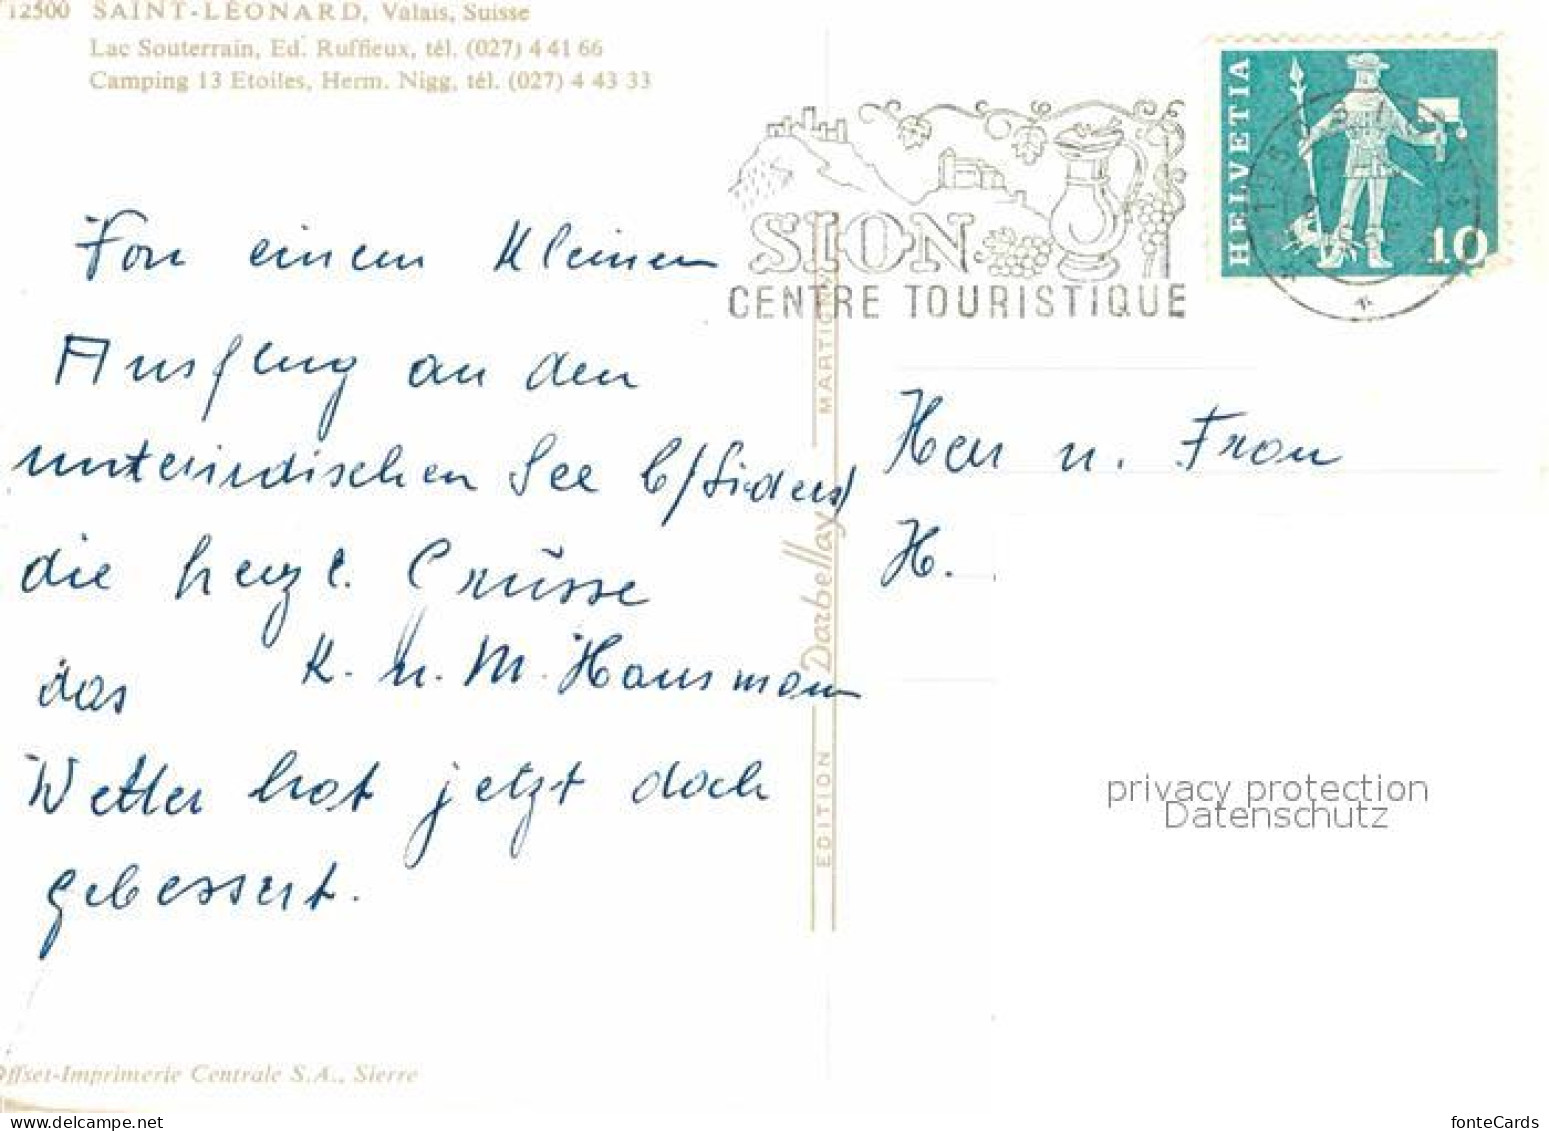 12500 SAINT-LÉONARD, Valais, Suisse
Lac Souterrain, Ed. Ruffieux, tél. (027) 4 41 66
Camping 13 Etoiles, Herm. Nigg, tél. (027) 4 43 33
HELVETIA
10
SION
CENTRE TOURISTIQUE
Von einem kleinen
Ausflug an den
unterirdischen See b/Siders
die herzl. Grüsse
K. u. M. Hausmann
das
Wetter hat jetzt doch
gebessert.
Herr u. Frau
H.
EDITION Darbellay MARTIGNY
privacy protection
Datenschutz
Offset-Imprimerie Centrale S.A., Sierre
delcampe.net
fonteCards